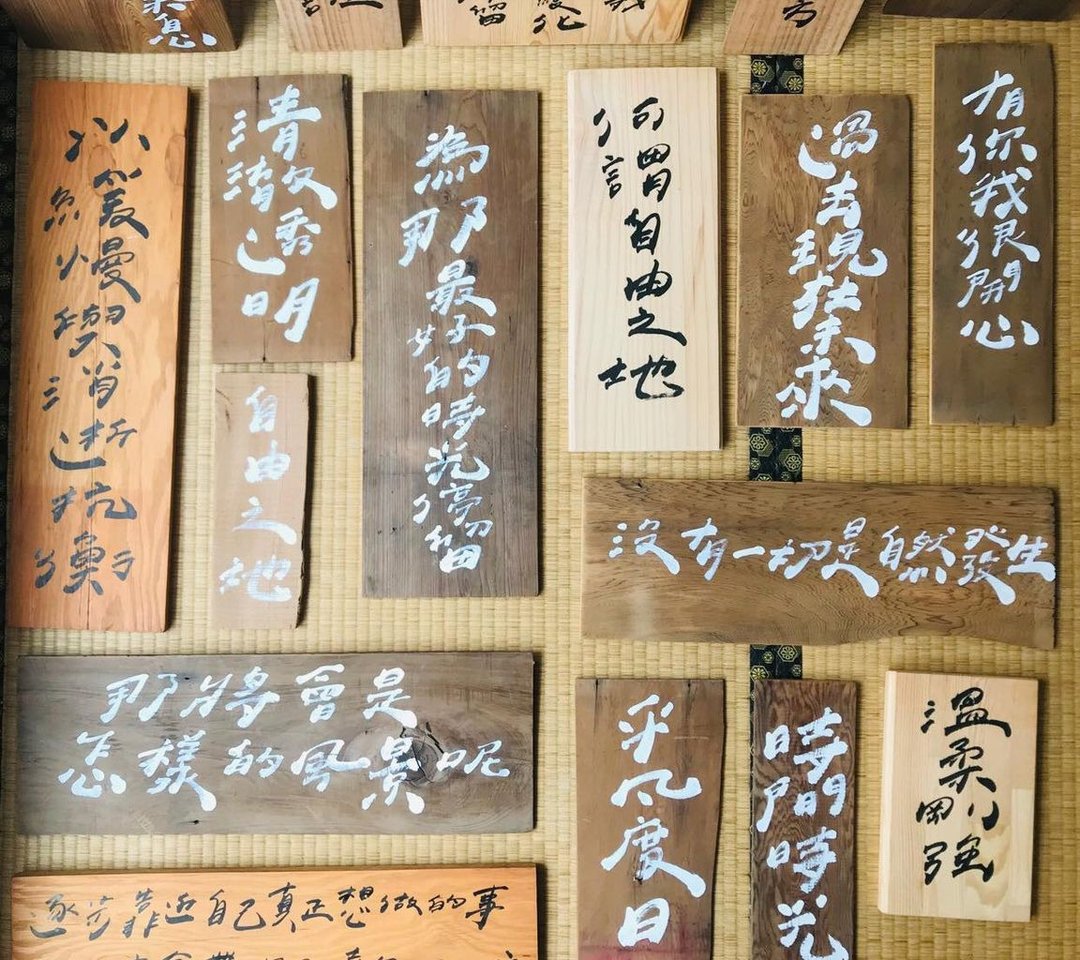 以緩慢與消逝抗衡
清澈透明
自由之地
為那最好的時光停留
何謂自由之地
過去現在未來
有你我很開心
沒有一切是自然發生
那將會是
怎樣的風景呢
平凡度日
時間時光
溫柔剛強
逐步靠近自己真正想做的事